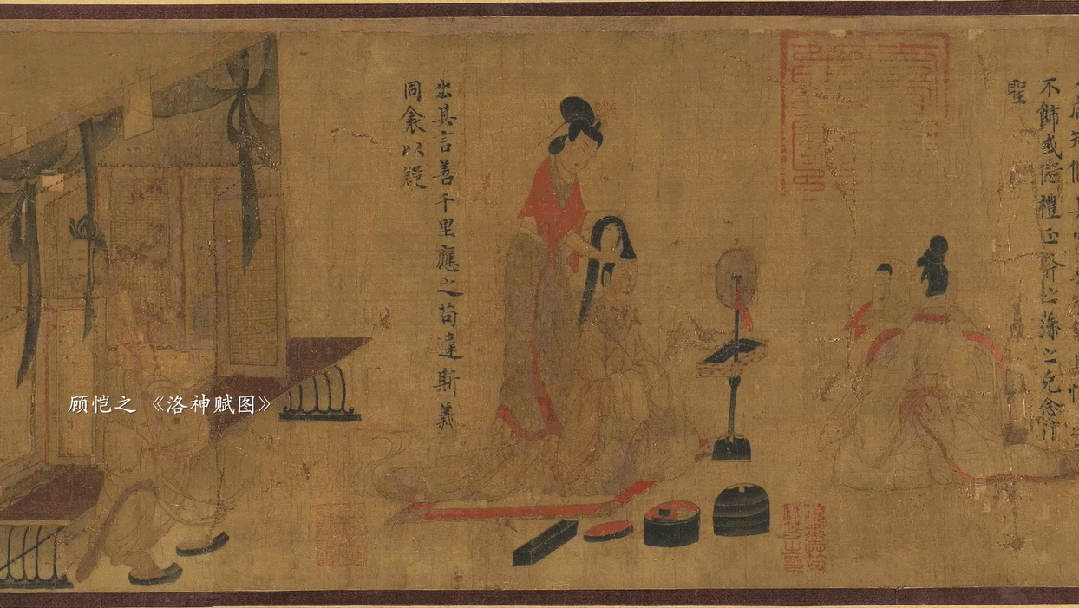 不飾或愆禮正斧之藻之克念作
聖
出其言善千里應之苟違斯義
同衾以疑
顾恺之 《洛神赋图》